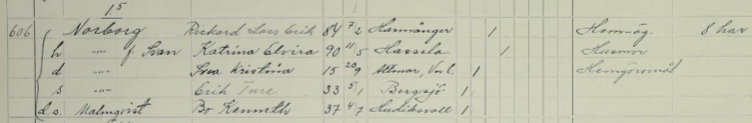 15
606 Norborg Rickard Lars Erik 84 2/2 Hamrånger 1 Hem-äg. 8 har
h -"- f. Svan Katrina Elvira 90 11/5 Hassela 1 Husmor
d -"- Svea Kristina 15 20/9 Attmar, Vnl. 1 Hemgöromål
s -"- Erik Ture 33 5/1 Bergsjö 1
d.s. Malmqvist Bo Kenneth 37 4/7 Hudiksvall 1